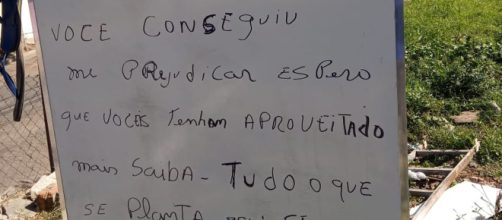 VOCE CONSEGUIU
me PREJUDICAR ESPERO
que VOCÊS TENHAM APROVEITADO
mais SAIBA - TUDO O QUE
SE PLANTA